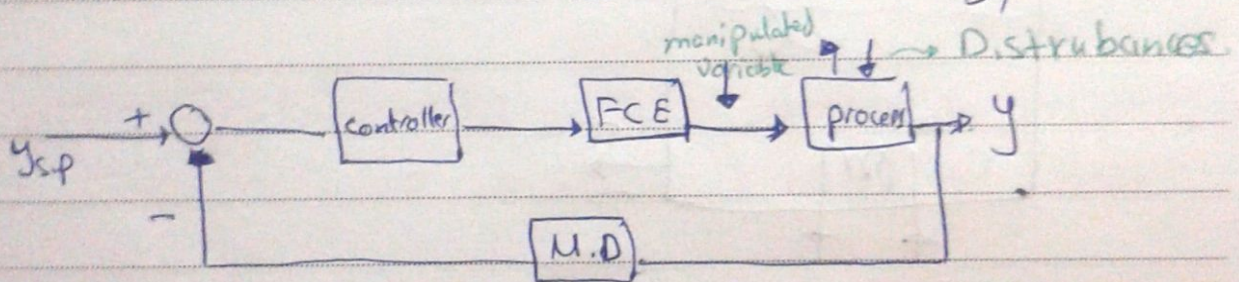 manipulated
variable
D.strubances
+
controller
FCE
process
y
ysp
-
M.D